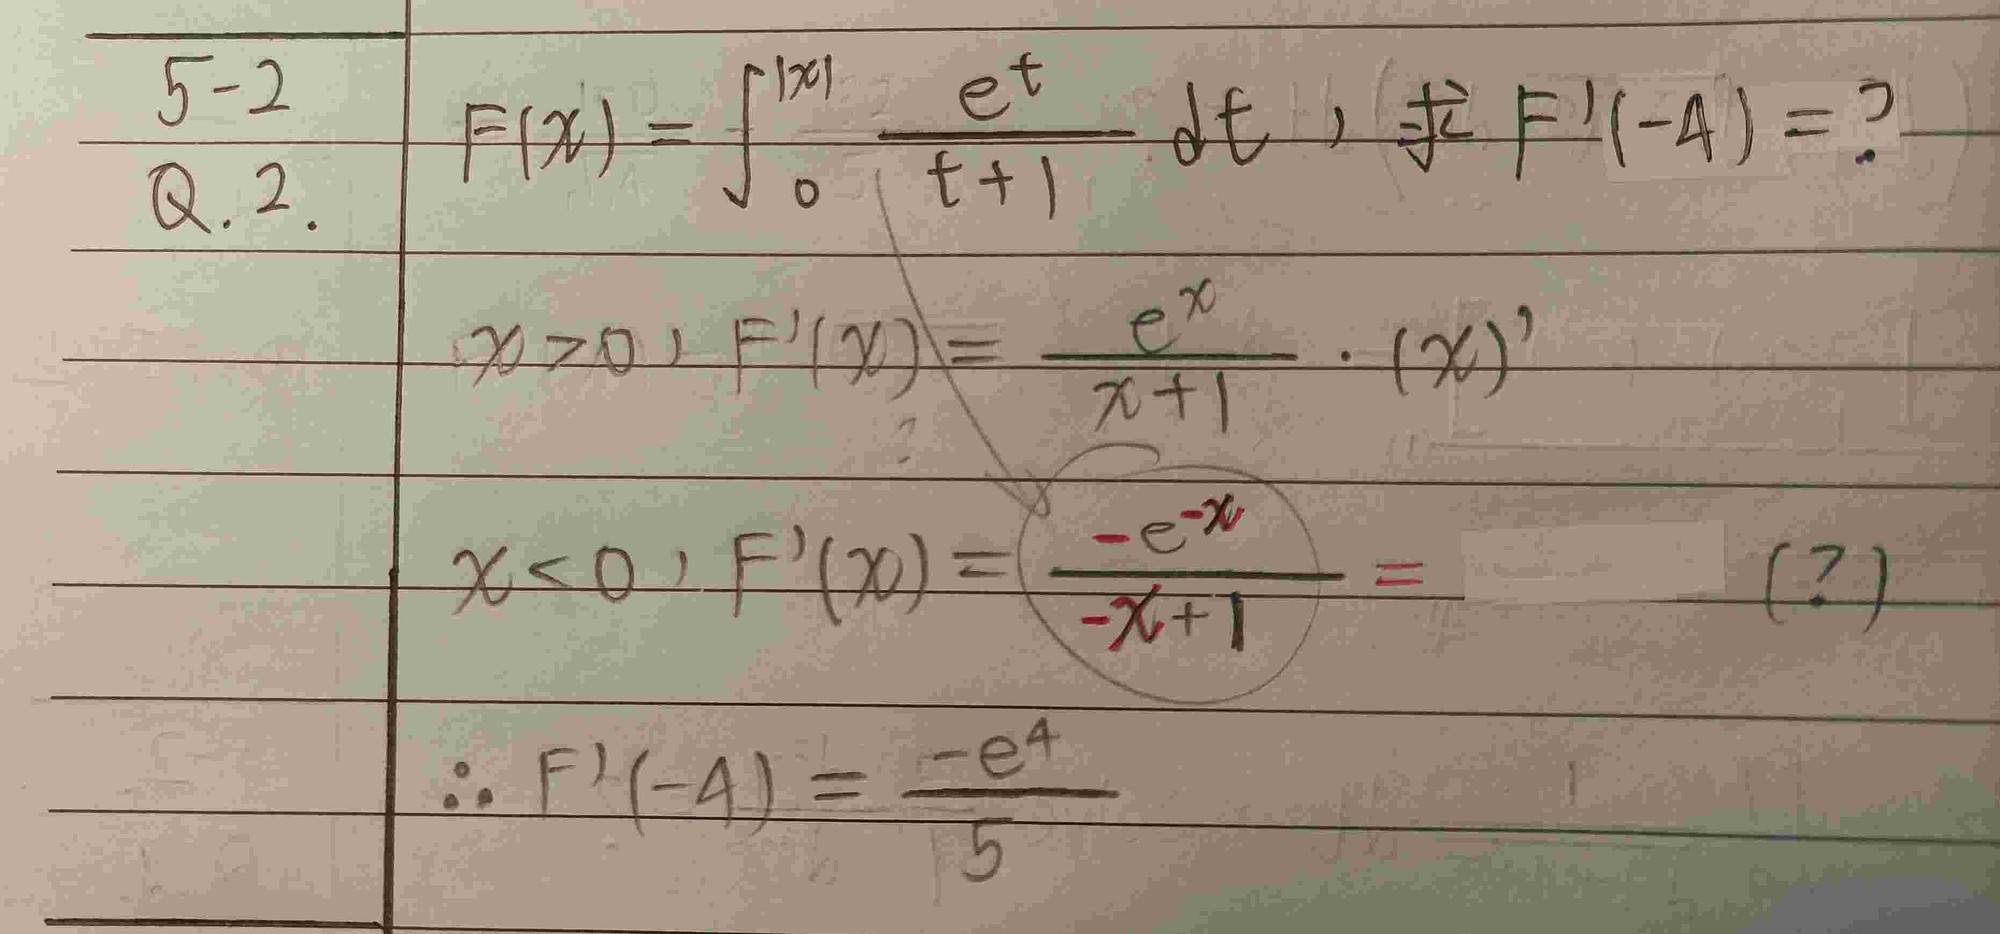 5-2
Q. 2.
F(x) = ∫₀^|x| e^t / (t+1) dt , 求 F'(-4) = ?
x > 0 , F'(x) = e^x / (x+1) · (x)'
?
x < 0 , F'(x) = -e^-x / (-x+1) = (?)
∴ F'(-4) = -e^4 / 5